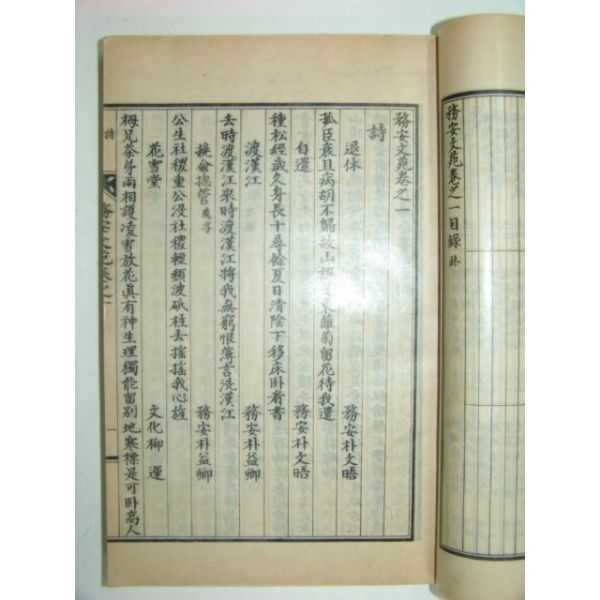 務安文苑卷之一目錄 終
務安文苑卷之一
詩
退休 務安朴文晤
孤臣衰且病胡不歸故山 東籬菊留花待我還
自遣 務安朴文晤
種松經歲久身長十尋餘夏日清陰下移床卧看書
渡漢江 務安朴益卿
去時渡漢江來時渡漢江將我無窮恨薄言洗漢江
挽俞摠管應孚 務安朴益卿
公生社稷重公没社稷輕頹波砥柱去搖搖我心旌
花雪堂 文化柳運
梅兄茶弟兩相護凌雪放花眞有神生理獨能留别地寒標是可卧高人
詩
務安文苑卷之一
一